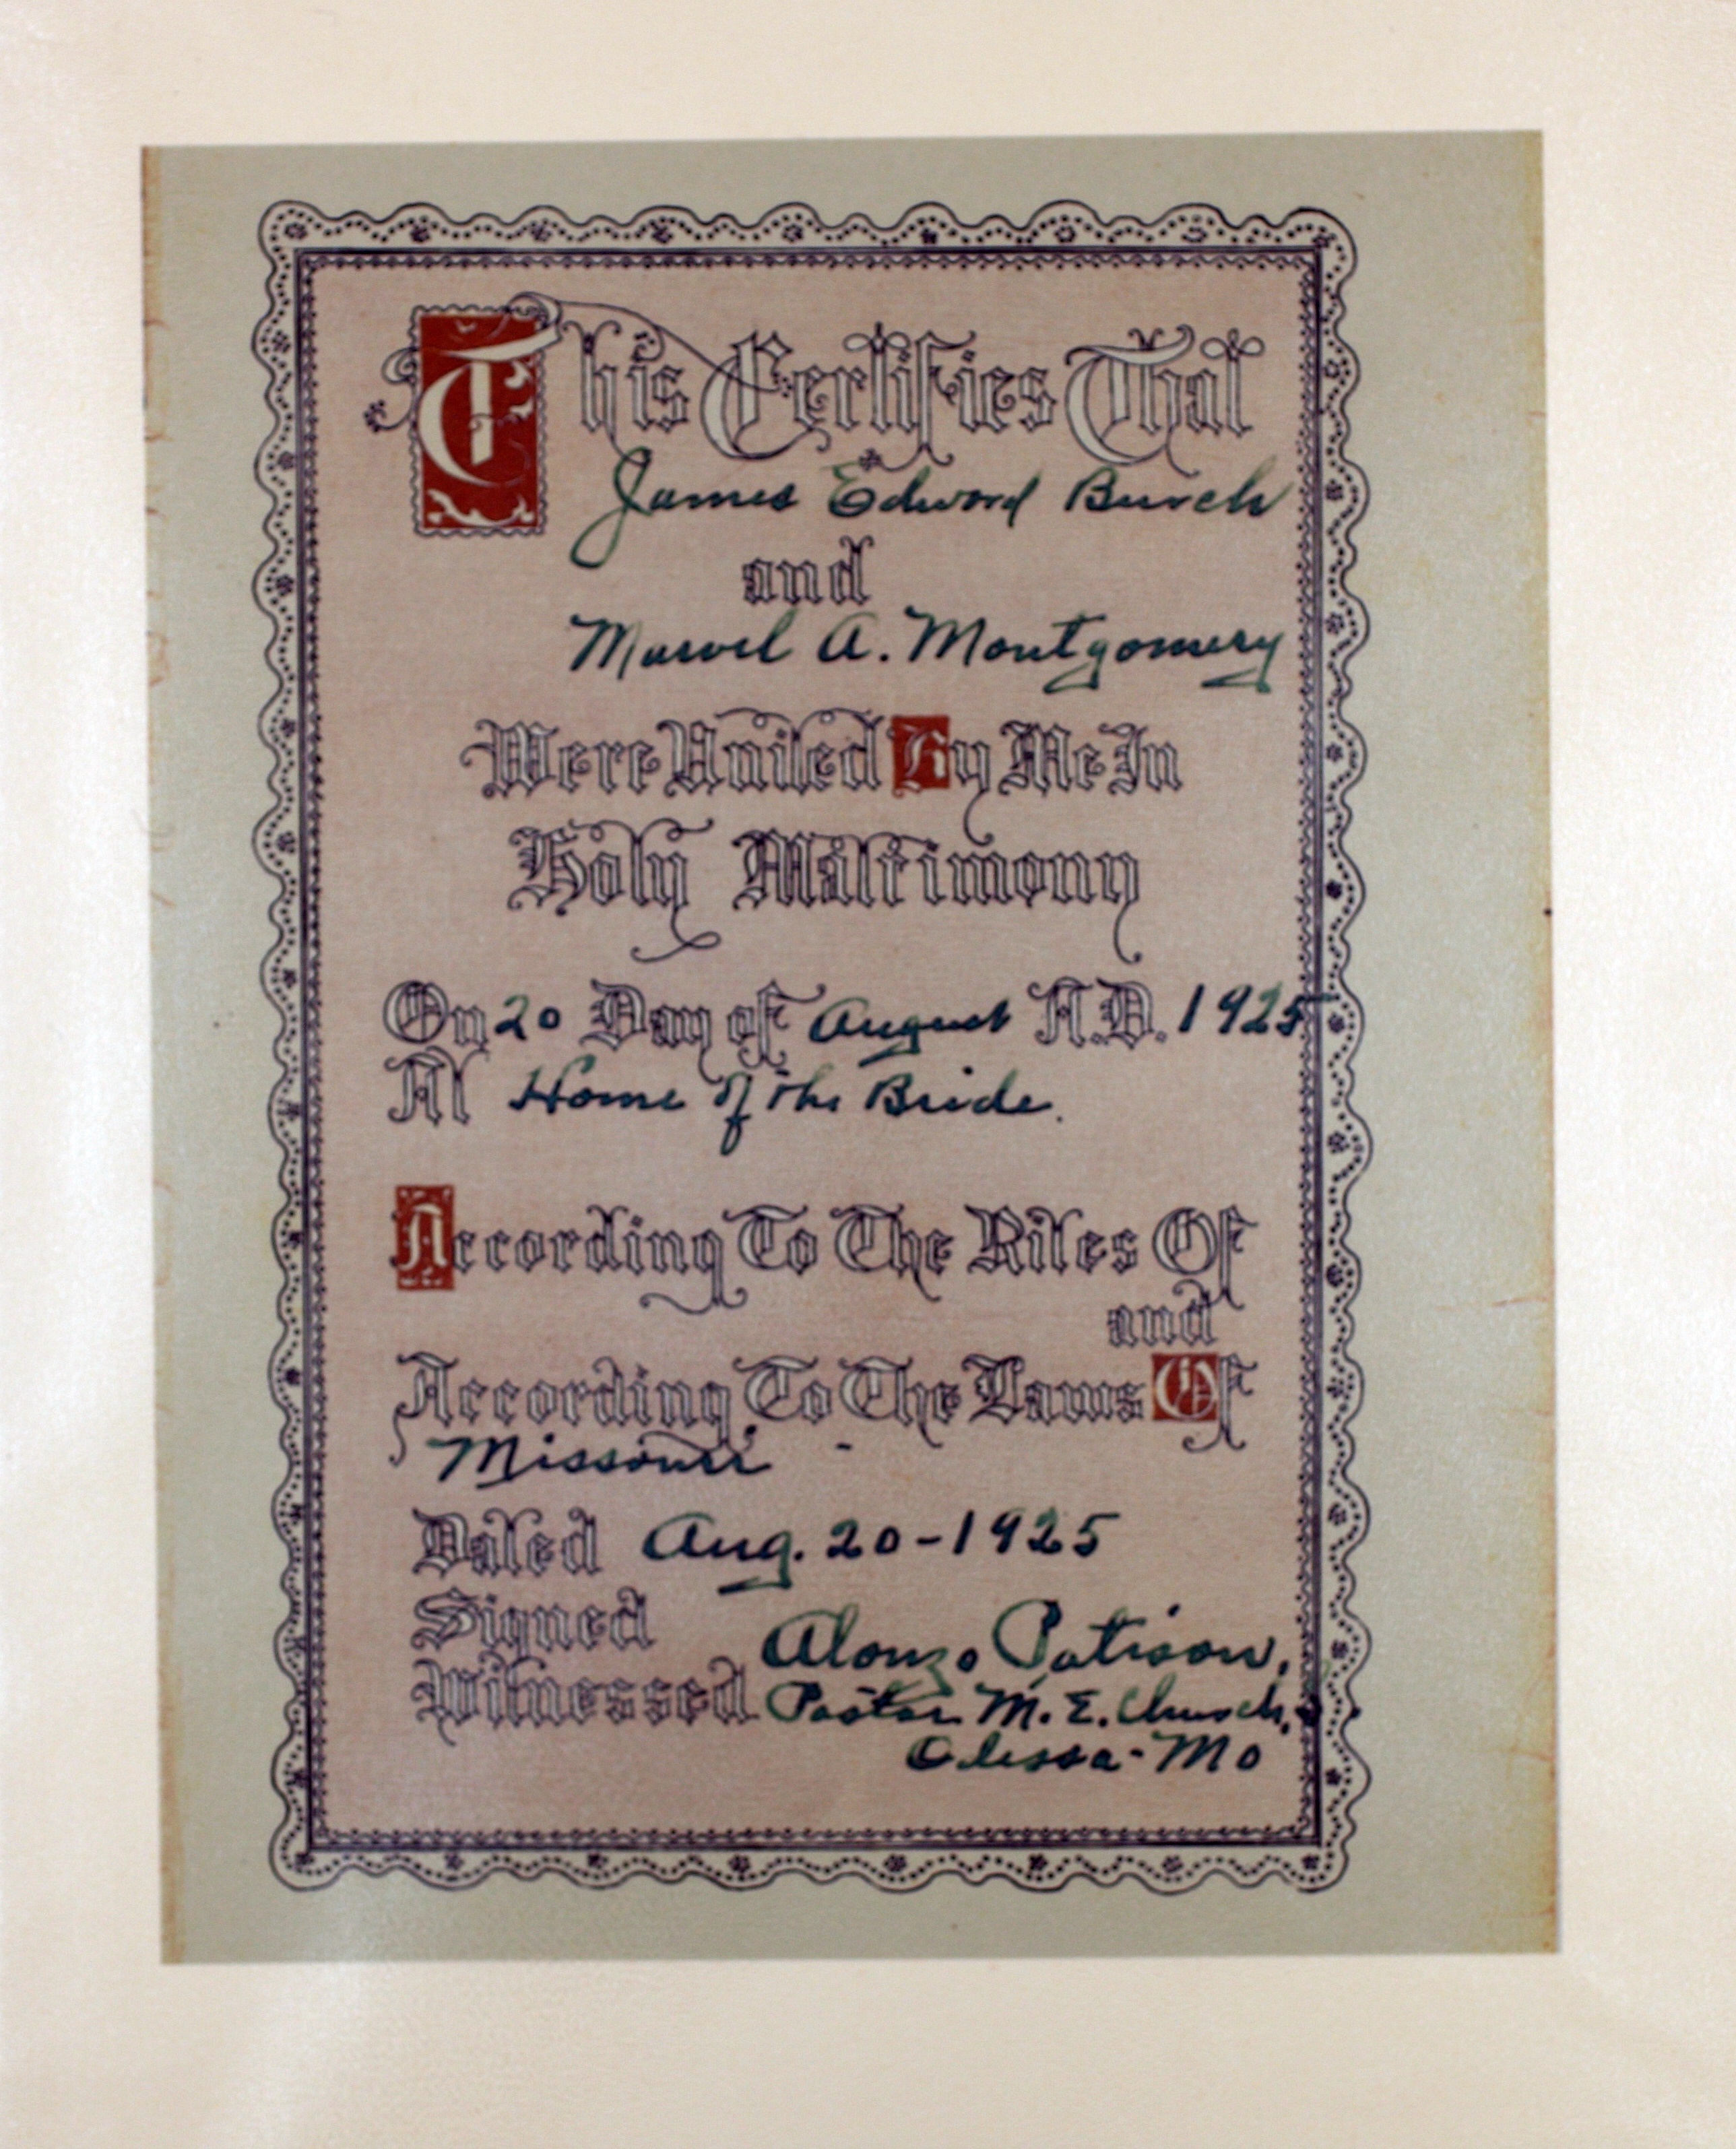 This Certifies That
James Edward Burch
and
Marvel A. Montgomery
Were United By Me In
Holy Matrimony
On 20 Day of August A.D. 1925
At Home of the Bride.
According To The Rites Of
and
According To The Laws Of
Missouri
Dated Aug. 20-1925
Signed
Alonzo Patison,
Witnessed Pastor M. E. Church,
Odessa-Mo